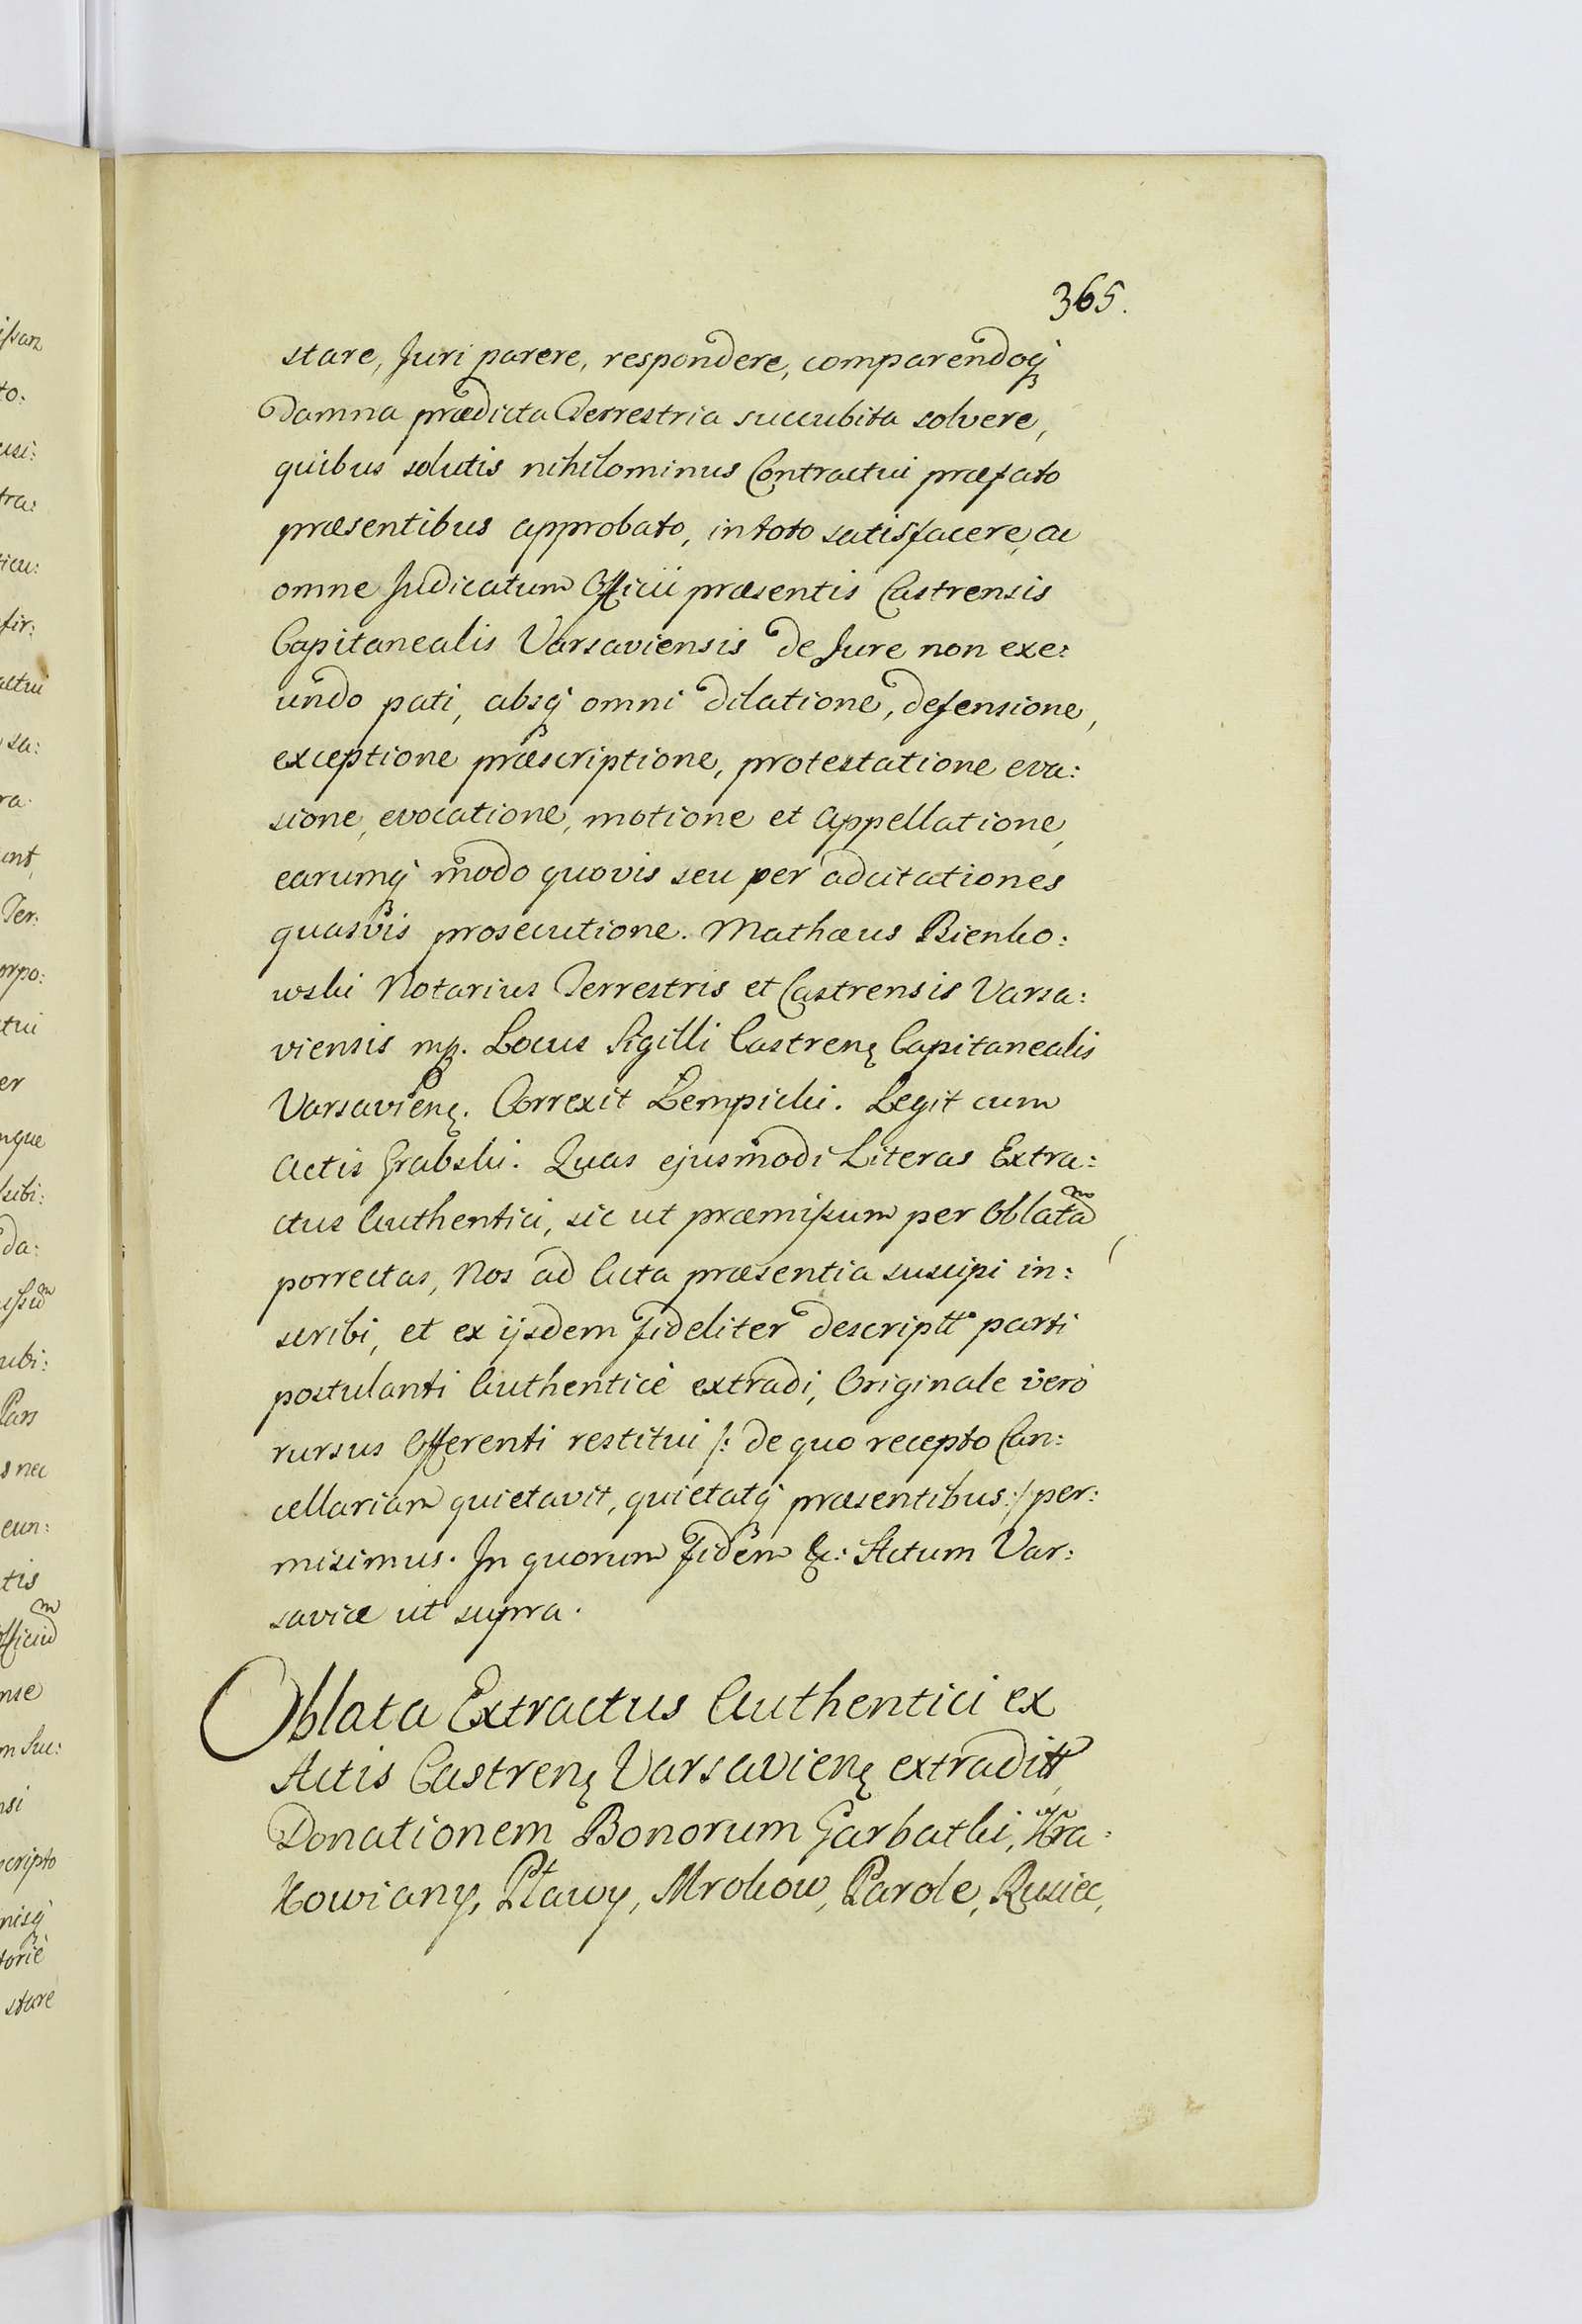 365.
stare, Juri parere, respondere, comparendoq;
Damna prædicta Terrestria succubita solvere,
quibus solutis nihilominus Contractui præfato
præsentibus approbato, in toto satisfacere, ac
omne Judicatum Officii præsentis Castrensis
Capitanealis Varsaviensis de Jure non exe:
undo pati, absq; omni dilatione, defensione,
exceptione præscriptione, protestatione eva:
sione, evocatione, motione et Appellatione,
earumq; modo quovis seu per adcitationes
quasvis prosecutione. Mathæus Bienko:
wski Notarius Terrestris et Castrensis Varsa:
viensis mp. Locus Sigilli Castren: Capitanealis
Varsavien: Correxit Lempicki. Legit cum
Actis Grabski. Quas ejusmodi Literas Extra:
ctus Authentici, sic ut præmissum per Oblatam
porrectas, Nos ad Acta præsentia suscipi in:
scribi, et ex ijsdem fideliter descriptt parti
postulanti Authenticè extradi, Originale verò
rursus Offerenti restitui /: de quo recepto Can:
cellariam quietavit, quietatq; præsentibus :/ per:
misimus. In quorum fidem &c: Actum Var:
saviæ ut supra.
Oblata Extractus Authentici ex
Actis Castren: Varsavien: extraditt
Donationem Bonorum Garbatki, Kra:
kowiany, Pławy, Mrokow, Parole, Rusiec,